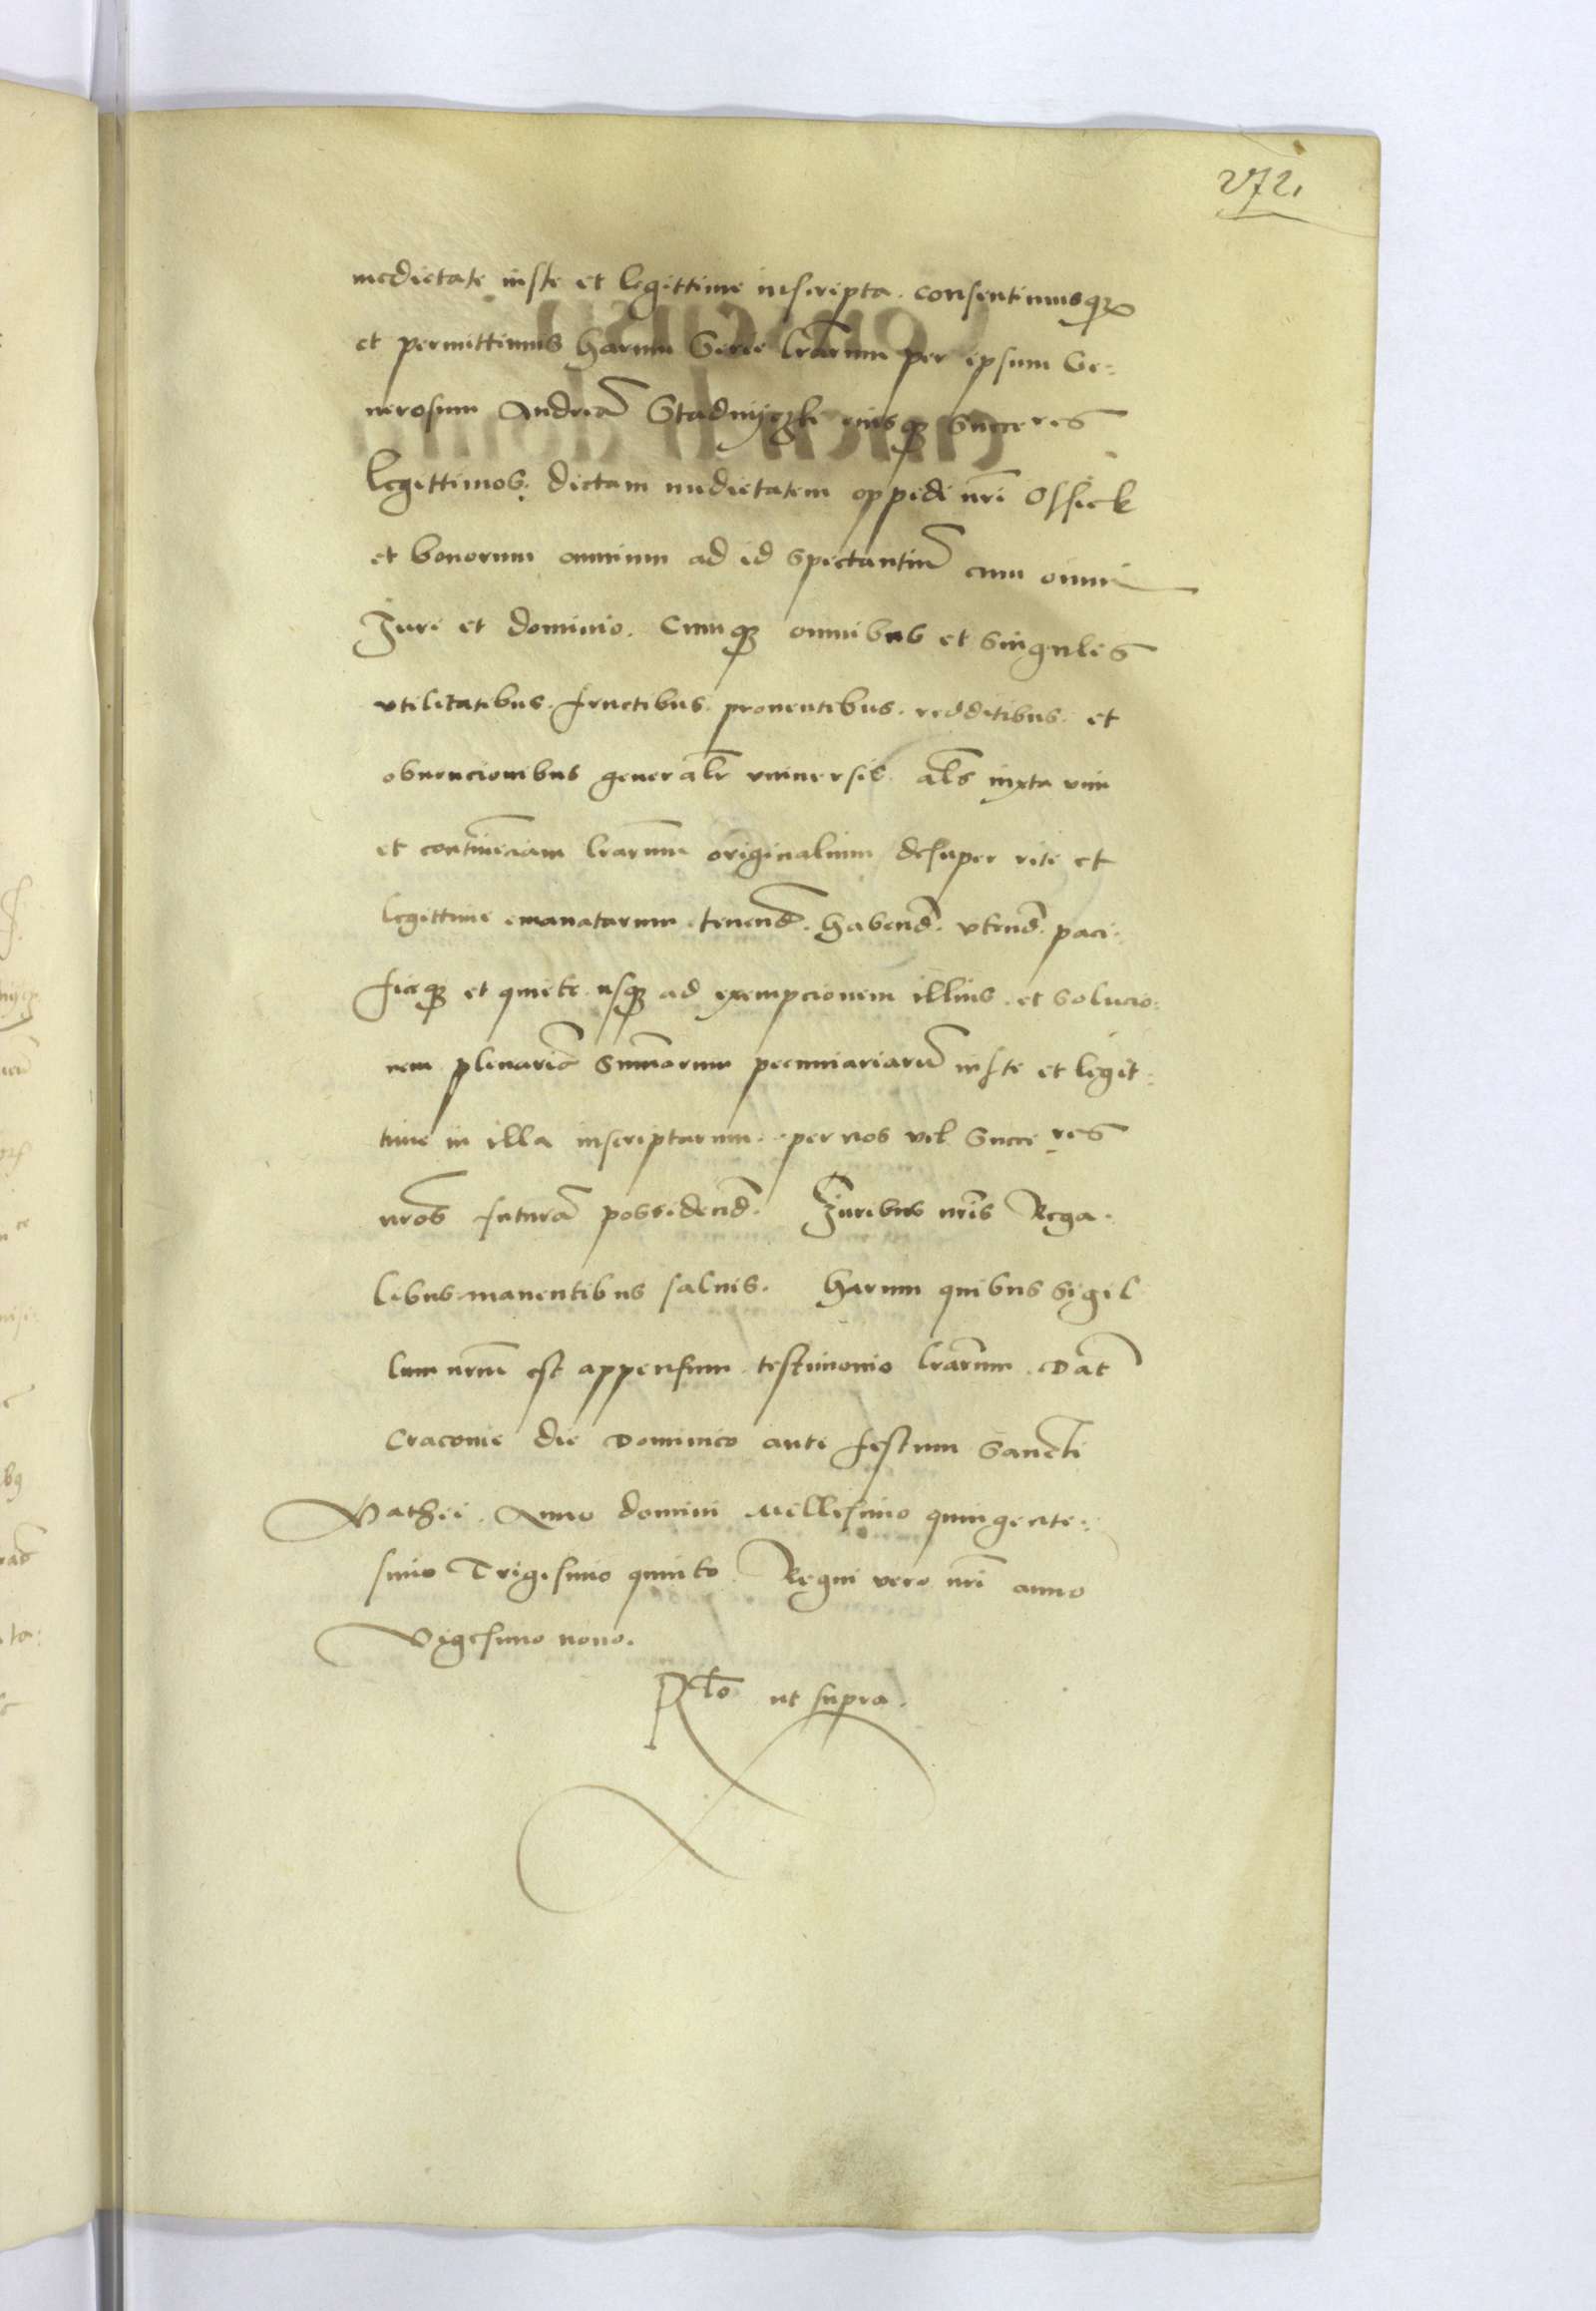 272
medietate iuste et legittime inscripta. consentimusq3
et permittimus harum Serie lrarum per ipsum Ge:
nerosum Andream Stadnyczki eiusq3 Succeres
legittimos. dictam medietatem oppidi nri Ossiek
et bonorum omnium ad id spectantium cum omni
Jure et dominio. Cumq3 omnibus et singulis
vtilitatibus. fructibus. prouentibus. redditibus. et
obuencionibus generalr vniuersis. als iuxta vim
et continenciam lrarum originalium desuper rite et
legittime emanatarum. tenend. habend. vtend. paci:
ficeq3 et quiete usq3 ad exempcionem illius. et solucio:
nem plenaria Summarum pecuniariaru iuste et legit:
time in illa inscriptarum. per nos vel Succeres
nros futura possidend. Juribus nris Rega.
libus manentibus saluis. Harum quibus sigil
lum nrm est appensum testimonio lrarum. Dat
Cracouie die Dominico ante festum Sancti
Mathei. Anno domini Millesimo quingente:
simo Trigesimo quinto. Regni vero nri anno
Vigesimo nono.
Rlto ut supra.